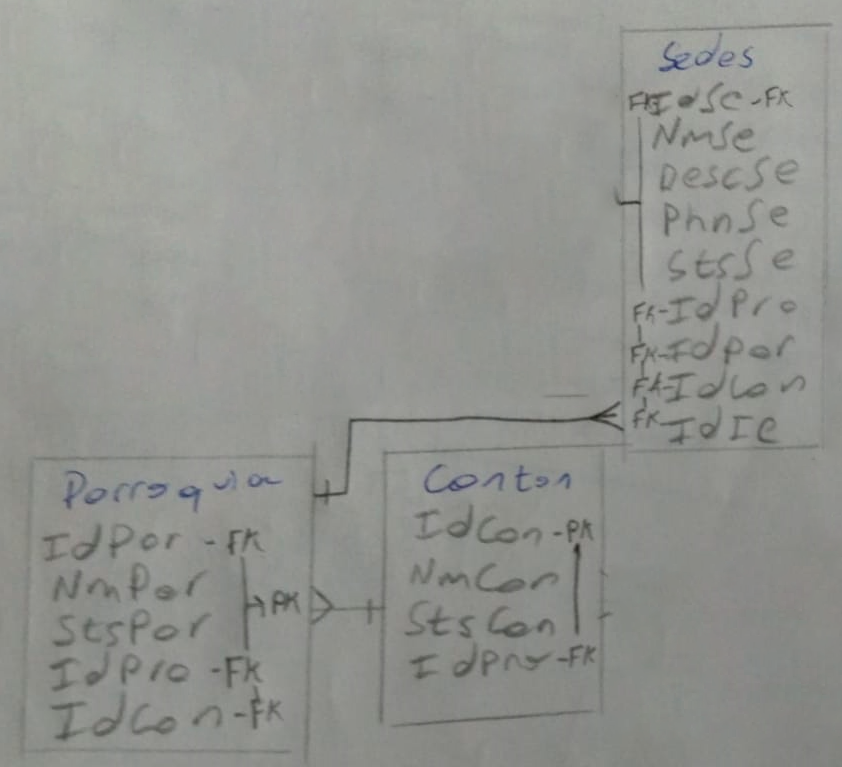 Sedes
IdSe-FK
NmSe
DescSe
PhnSe
StsSe
FK-IdPro
FK-IdPar
FK-IdCon
FK IdIe
Parroquia
IdPar-FK
NmPar
StsPar
PK
IdPro-FK
IdCon-FK
Canton
IdCon-PK
NmCon
StsCon
IdPro-FK